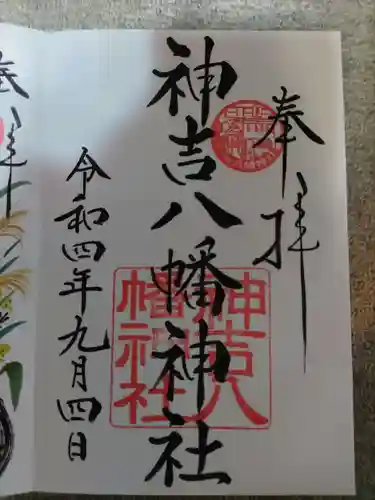 奉拝
神吉八幡神社
神吉八
幡神社
令和四年九月四日
拝